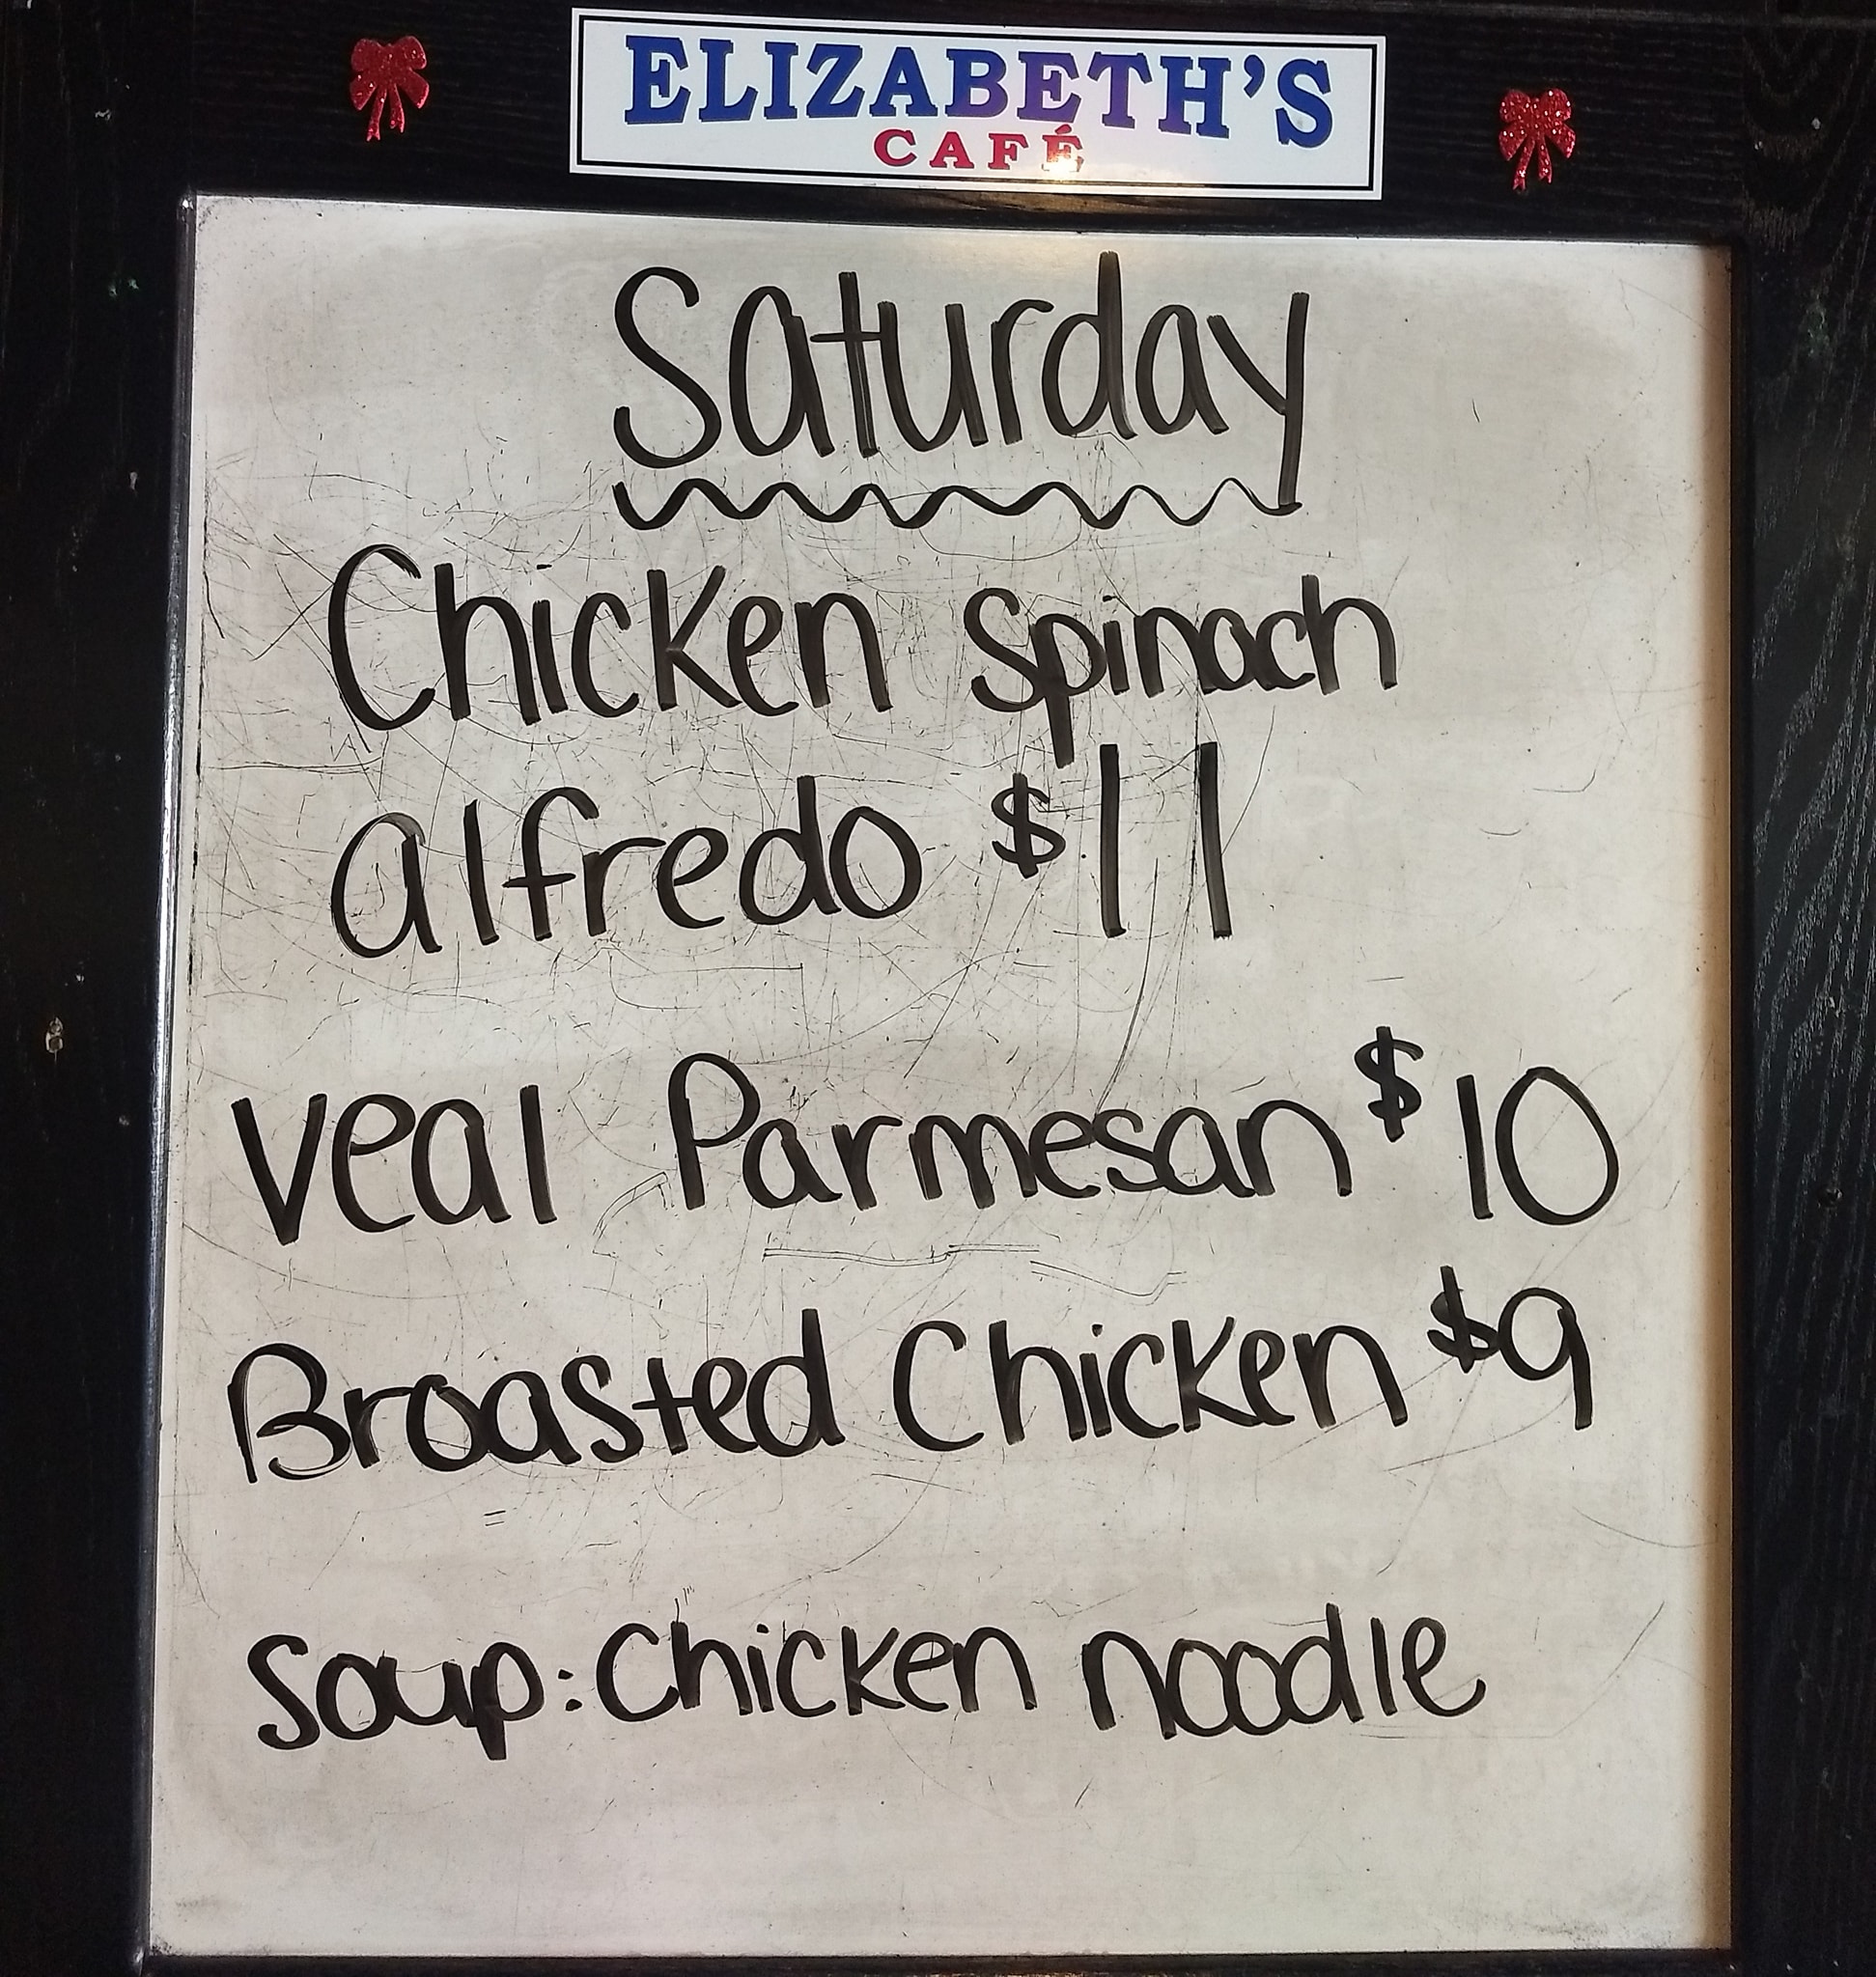 ELIZABETH'S
CAFÉ
Saturday
Chicken Spinach
alfredo $11
Veal Parmesan $10
Broasted Chicken $9
Soup: Chicken noodle